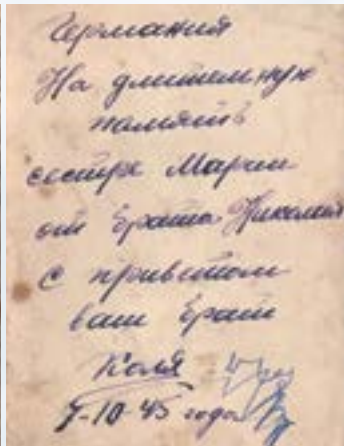 Германия
На длительную
память
сестре Марии
от брата Николая
с приветом
ваш брат
Коля
7-10-45 года